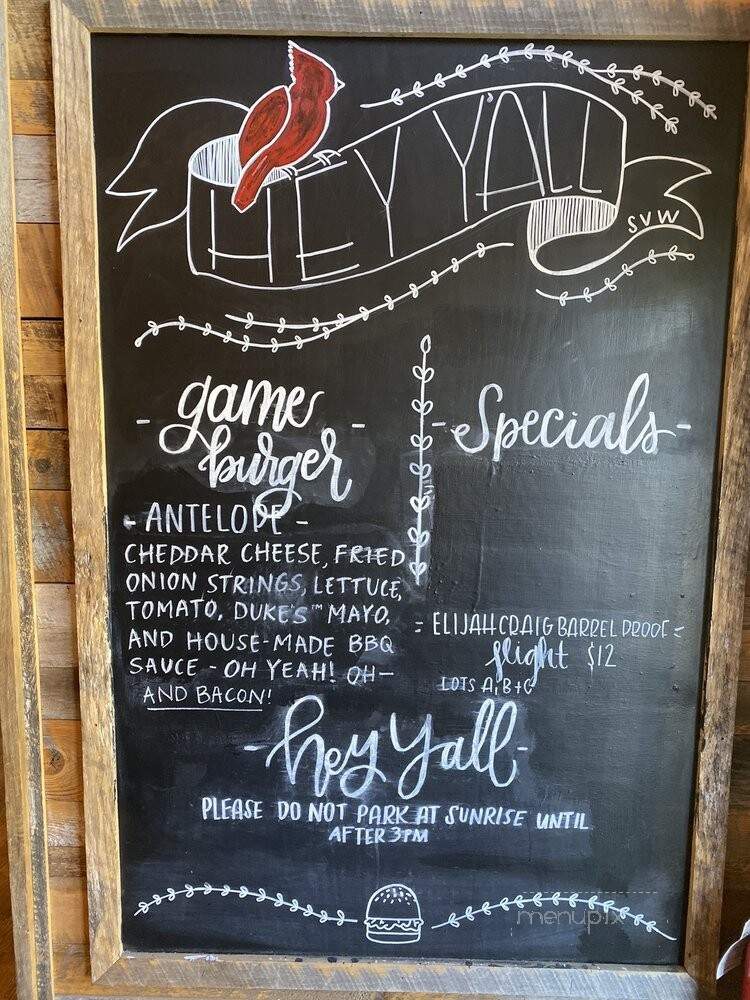 HEY Y'ALL
SVW
- game -
burger
- ANTELOPE -
CHEDDAR CHEESE, FRIED
ONION STRINGS, LETTUCE,
TOMATO, DUKE'S™ MAYO,
AND HOUSE-MADE BBQ
SAUCE - OH YEAH! OH-
AND BACON!
- Specials -
= ELIJAH CRAIG BARREL PROOF =
flight $12
LOTS A, B + C
- hey y'all -
PLEASE DO NOT PARK AT SUNRISE UNTIL
AFTER 3PM
menupix